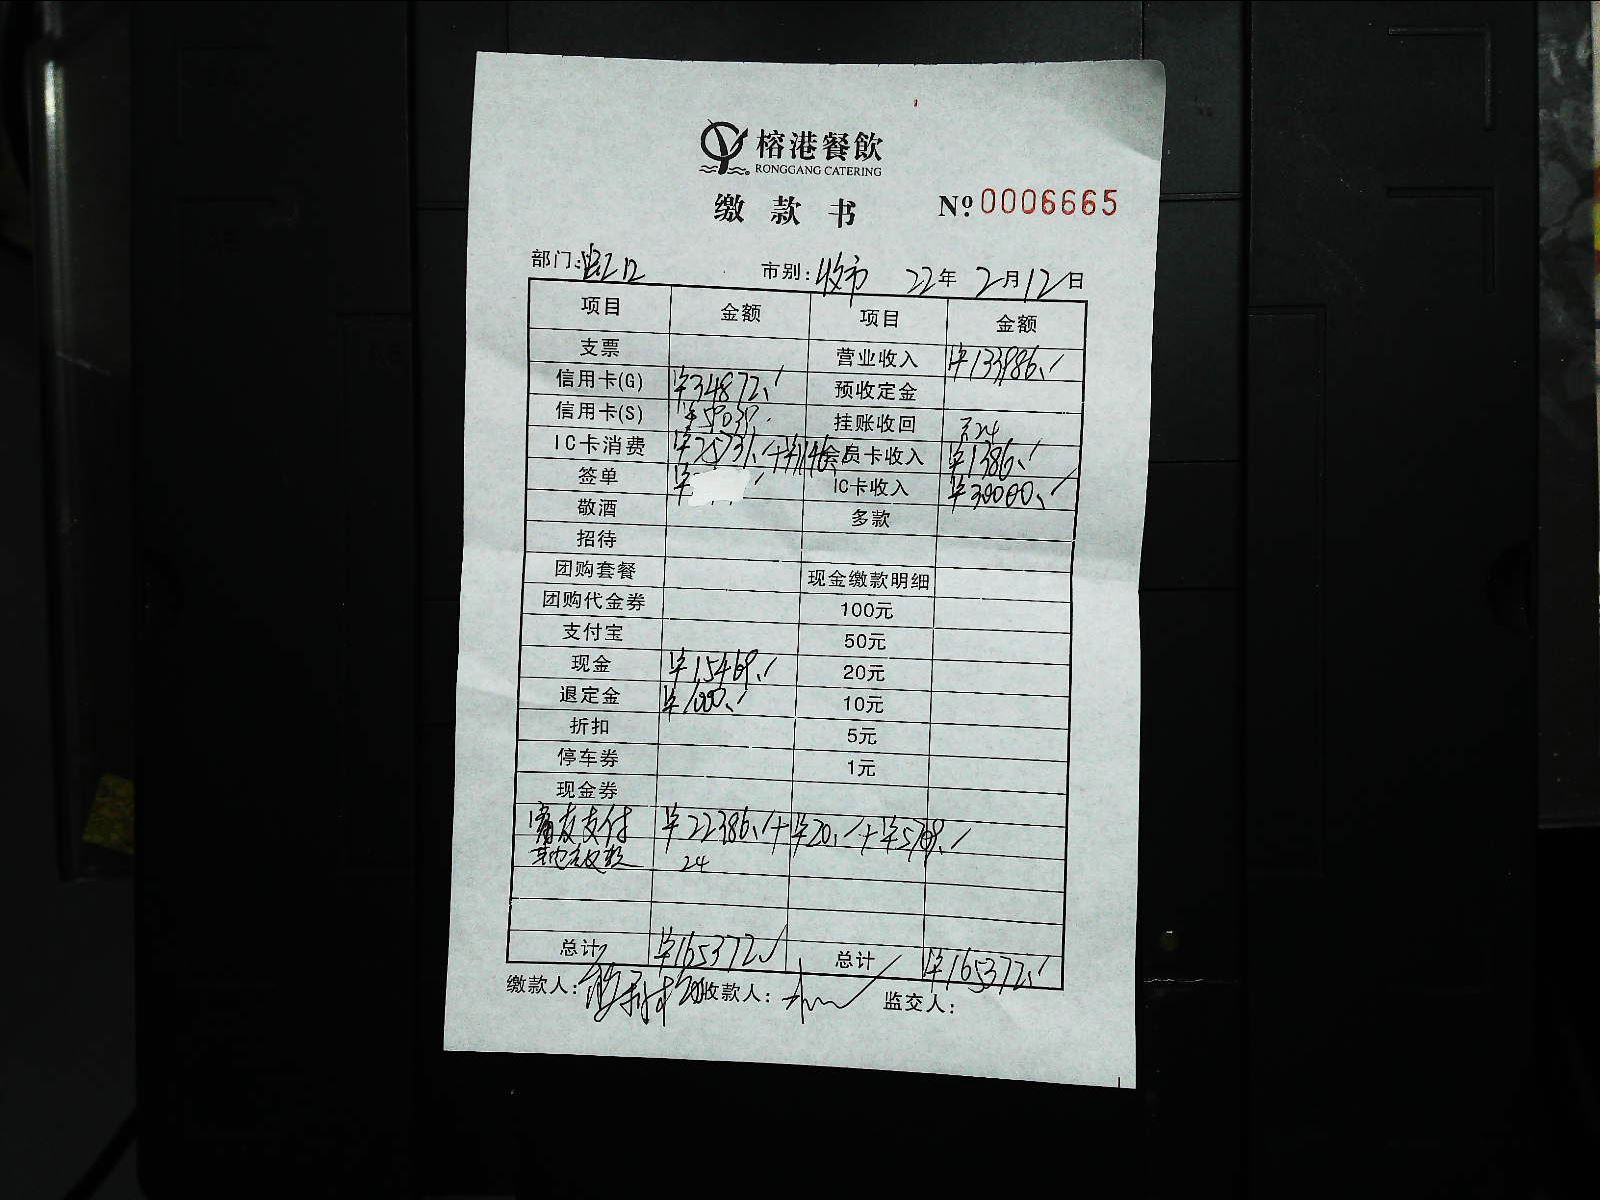 榕港餐飲
RONGGANG CATERING
缴款书 No. 0006665
部门: 市别: 收市 22年 2月12日
项目 金额 项目 金额
支票 营业收入 ¥133986.
信用卡(G) ¥34872. 预收定金
信用卡(S) 挂账收回 24
IC卡消费 ¥25731.+¥146. 会员卡收入 ¥1386.
签单 ¥ IC卡收入 ¥30000.
敬酒 多款
招待
团购套餐 现金缴款明细
团购代金券 100元
支付宝 50元
现金 ¥15469. 20元
退定金 ¥1000. 10元
折扣 5元
停车券 1元
现金券
支付 ¥22386.+¥20.+¥5769.
其他 24
总计 ¥165372. 总计 ¥165372.
缴款人: 收款人: 监交人: